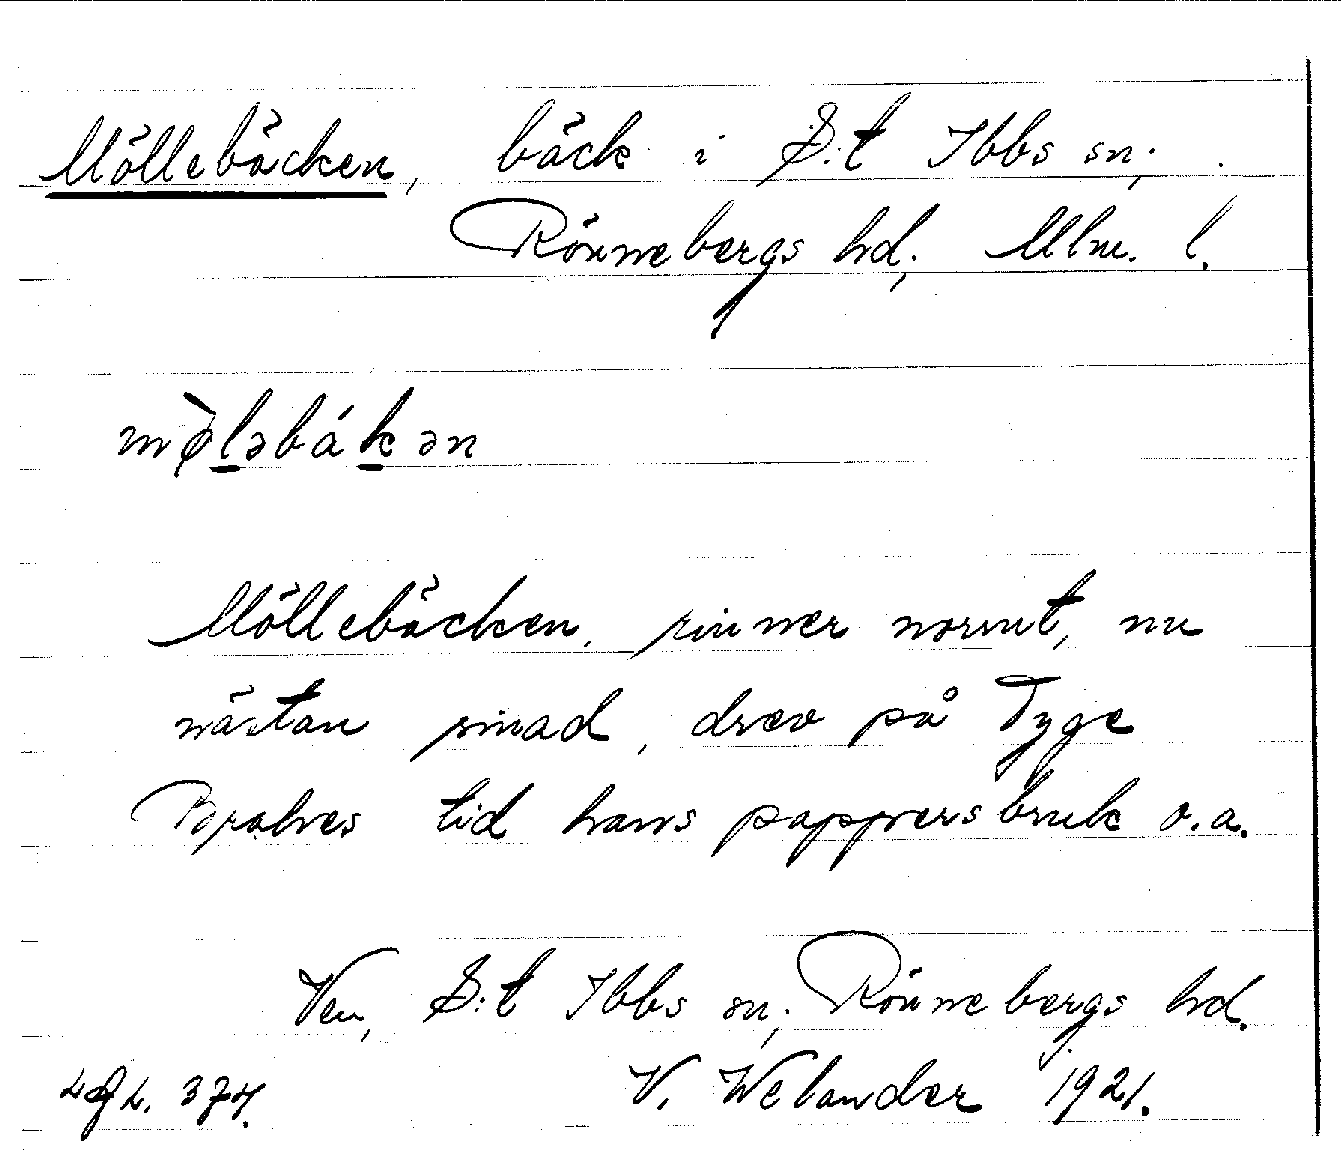 Möllebäcken, bäck i S:t Ibbs sn;
Rönnebergs hd; Mlm. l.
mø̀ləbákən
Möllebäcken, rinner norrut, nu
nästan sinad, drev på Tyge
Brahes tid hans pappersbruk o.a.
Ven, S:t Ibbs sn; Rönnebergs hd.
V. Welander 1921.